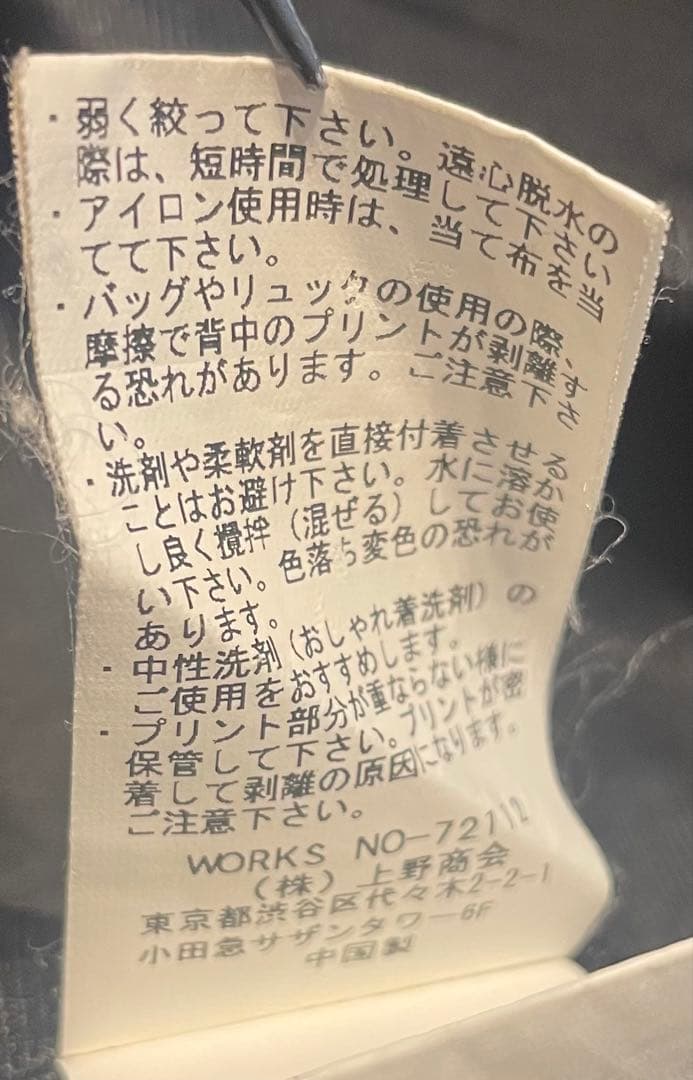 ・弱く絞って下さい。遠心脱水の
際は、短時間で処理して下さい
・アイロン使用時は、当て布を当
てて下さい。
・バッグやリュックの使用の際、
摩擦で背中のプリントが剥離す
る恐れがあります。ご注意下さ
い。
・洗剤や柔軟剤を直接付着させる
ことはお避け下さい。水に溶か
し良く攪拌（混ぜる）してお使
い下さい。色落ち変色の恐れが
あります。
・中性洗剤（おしゃれ着洗剤）の
ご使用をおすすめします。
・プリント部分が重ならない様に
保管して下さい。プリントが密
着して剥離の原因になります。
ご注意下さい。
WORKS NO-72112
（株）上野商会
東京都渋谷区代々木2-2-1
小田急サザンタワー6F
中国製